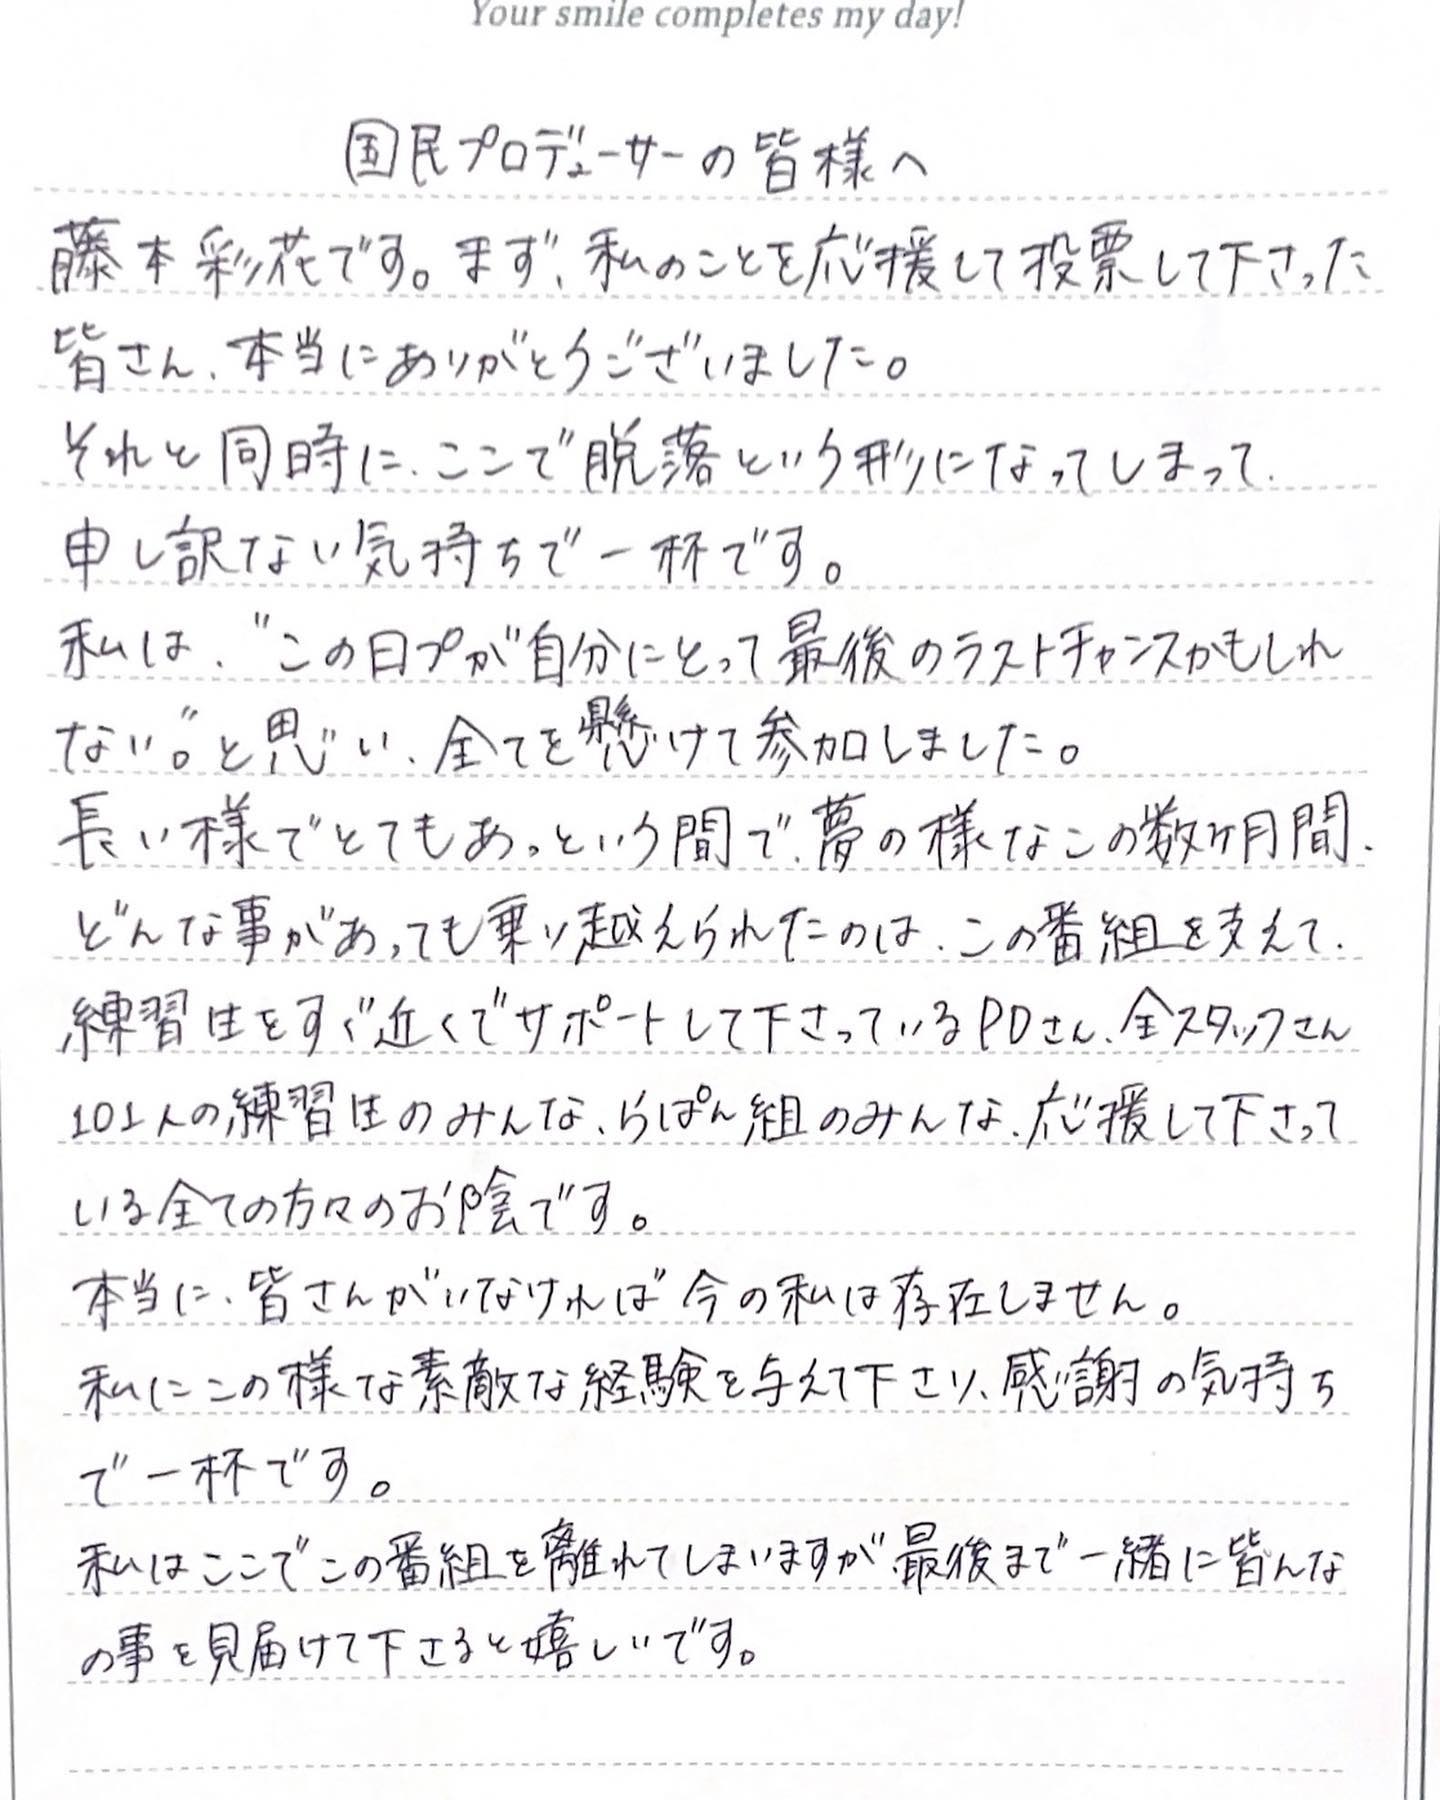 Your smile completes my day!
国民プロデューサーの皆様へ
藤本彩花です。まず、私のことを応援して投票して下さった
皆さん、本当にありがとうございました。
それと同時に、ここで脱落という形になってしまって、
申し訳ない気持ちで一杯です。
私は、"この日プが自分にとって最後のラストチャンスかもしれ
ない。"と思い、全てを懸けて参加しました。
長い様でとてもあっという間で、夢の様なこの数ヶ月間、
どんな事があっても乗り越えられたのは、この番組を支えて、
練習生をすぐ近くでサポートして下さっているPDさん、全スタッフさん
101人の練習生のみんな、らぱん組のみんな、応援して下さって
いる全ての方々のお陰です。
本当に、皆さんがいなければ今の私は存在しません。
私にこの様な素敵な経験を与えて下さり、感謝の気持ち
で一杯です。
私はここでこの番組を離れてしまいますが、最後まで一緒に皆んな
の事を見届けて下さると嬉しいです。